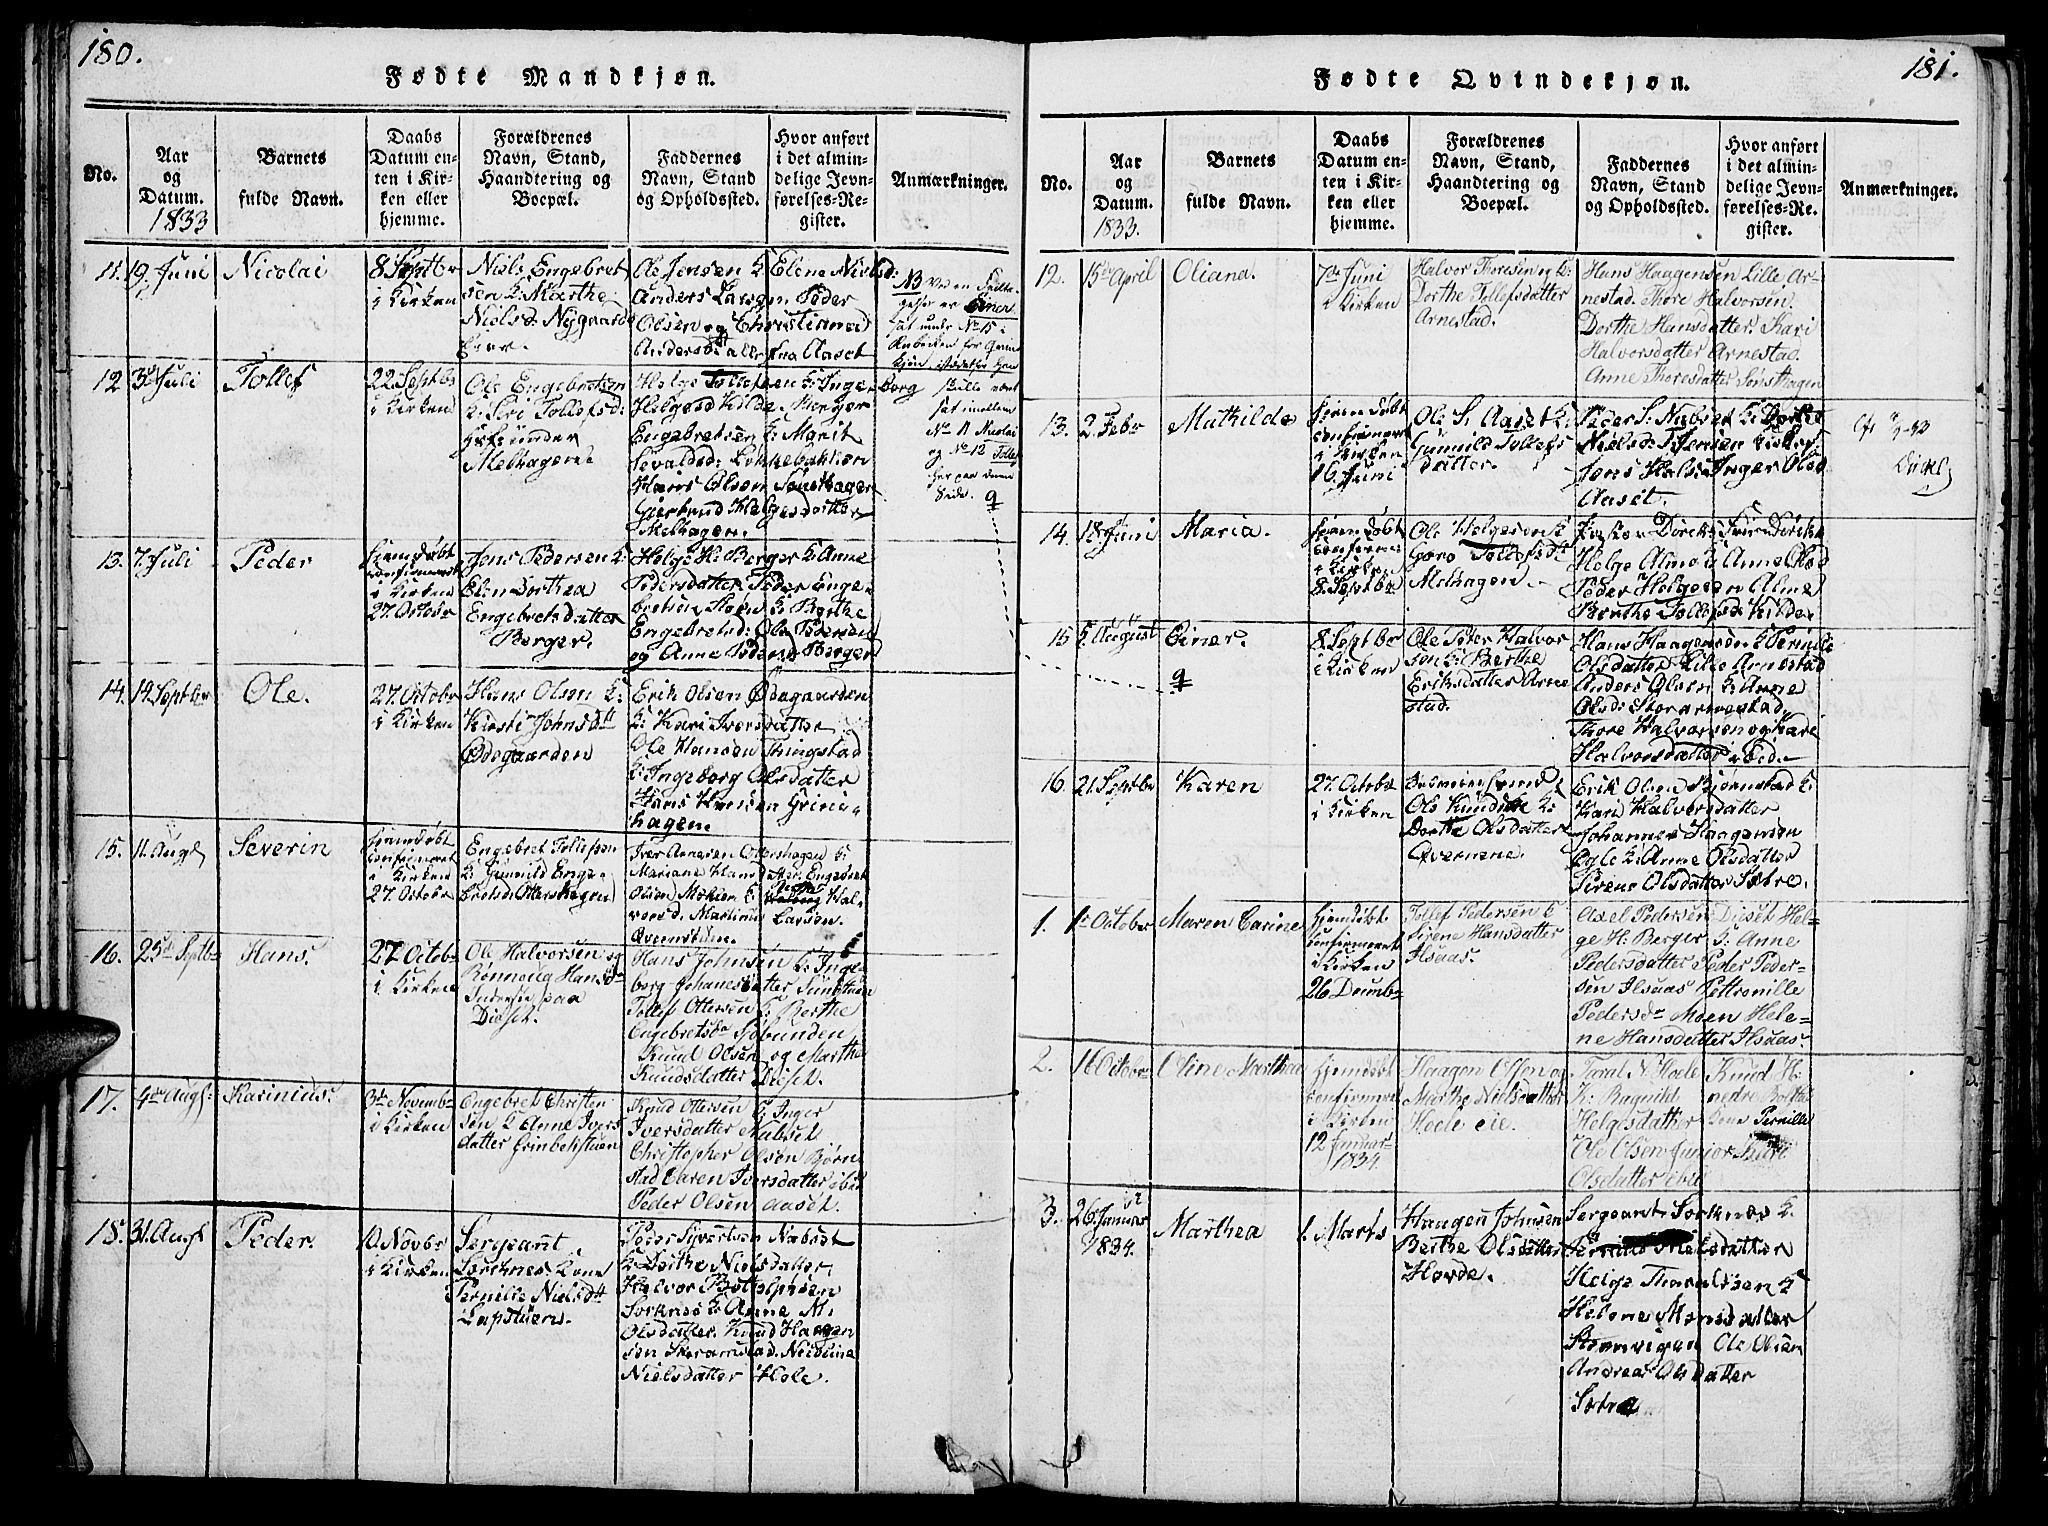 180.
Fødte Mandkjøn.
No.
Aar
og
Datum.
1833
Barnets
fulde Navn.
Daabs
Datum en-
ten i Kir-
ken eller
hjemme.
Forældrenes
Navn, Stand,
Haandtering og
Boepæl.
Faddernes
Navn, Stand
og Opholdssted.
Hvor anført
i det almin-
delige Jevn-
førelses-Re-
gister.
Anmærkninger.
11. 19. Juni
Nicolai
8 Septbr
i Kirken
Niels Engebret
sen K: Marthe
Nielsd. Nygaards
Eier.
Ole Jensen K: Elene Nielsd:
Anders Larsen Peder
Olsen og Christiane
Andersd alle fra Aaset
NB Ved en
er Einer
sat under No 15 i
Rubriken for Qvin
kjøn, istedetfor han
skulle været
sat imellem
No 11 Nicolai
og No 12 Tollef
her paa denne
Side.
12 3die Juli
Tollef
22 Septbr
i Kirken
Ole Engebretsen
K: Siri Tollefsd:
under
Melhagen.
Helge Tollefsen K: Inge borg
Helgesd Kilde. Berger
Engebretsen K: Marit
Sevaldsd: Løkkebakken
Hans Olsen Sønsthagen
Giertrud Helgesdatter
Melhagen.
13. 7. Juli
Peder
hjemdøbt
confirmeret
i Kirken
27 Octobr
Jens Pedersen K:
Elen Dorthea
Engebretsdatter
Berger.
Helge H. Berger K: Anne
Pedersdatter Peder Enge
bretsen Moen K: Berthe
Engebretsd: Ole Pedersen
og Anne Pedersd Berger
14. 19. Septbr
Ole.
27. Octobr
i Kirken
Hans Olsen K:
Kirsti Johnsdtt
Ødegaarden
Erik Olsen Ødegaarden
K: Kari Iversdatter
Ole Hansen Thingstad
K: Ingeborg Olsdatter
Hans Hansen Grini-
hagen.
15. 11. Augt
Severin
hjemdøbt
confirmeret
i Kirken
27 Octobr
Engebret Tollefsen
K: Gunnild Enge-
bretsd: Ottershagen
Iver Arnesen Ottershagen K:
Mariane Hansdatter. Engebret
Olsen Moklev K: Halvorsd. Martinus Larsen.
Qvernstuen.
16. 25de Septbr
Hans.
27 Octobr
i Kirken
Ole Halvorsen og
Rønnoug Hansd
Inderste paa
Diset.
Hans Johnsen K: Inge-
borg Johanesdatter
Tollef Ottersen K: Berthe
Engebretsdr Sjøbunden
Knud Olsen og Marthe
Knudsdatter Diset.
17. 4de Augt.
Karinius.
3de Novembr
i Kirken
Engebret Christen
sen K Anne Ivers
datter Grinbekstuen
Knud Ottersen K: Inger
Iversdatter Nabset
Christopher Olsen Bjørn
stad Caren Iversdatter ibid
Peder Olsen Aaset.
18. 31. Augt
Peder.
10. Novbr
i Kirken
Sergeant
Sorknes Kone
Pernille Nielsdtt
Lapstuen.
Peder Syvertsen Næbset
K: Dorthe Nielsdatter.
Halvor Bottolphsen
Sorknes K: Anne M.
Olsdatter. Knud Haagen
sen Skramstad. Nicoline
Nielsdatter Hole.
181.
Fødte Qvindekjøn.
No.
Aar
og
Datum.
1833.
Barnets
fulde Navn.
Daabs
Datum en-
ten i Kir-
ken eller
hjemme.
Forældrenes
Navn, Stand,
Haandtering og
Boepæl.
Faddernes
Navn, Stand
og Opholdssted.
Hvor anført
i det almin-
delige Jevn-
førelses-Re-
gister.
Anmærkninger.
12. 15de April
Oliana.
7de Juni
i Kirken
Halvor Thoresen og K:
Dorthe Tollefsdatter
Arnestad.
Hans Haagensen Lille Ar-
nestad. Thore Halvorsen.
Dorthe Hansdatter. Kari
Halvorsdatter Arnestad.
Anne Thoresdatter Sønsthagen
13. 2. Febr
Mathilde
hjemdøbt
confirmeret
i Kirken
16. Juni
Ole S. Aaset K:
Gunnild Tollefs
datter.
Peder S: Næbset K: Dorthe
Nielsd: P. Jensen
Jens Inger Olsd
Aaset.
14. 18 Juni
Maria.
hjemdøbt
confirme
i Kirken
8. Septbr
Ole Helgesen K
Goro Tollefsdtt
Melhagen.
Helge Alme K Anne Olsd
Peder Helgesen Alme
Berthe Tollefsd: Kilde.
15 5. August
Einer.
8. Septbr
i Kirken
Ole Peter Halvor
sen K: Berthe
Eriksdatter Arne
stad.
Hans Haagensen K Pernille
Olsdatter Lille Arnestad
Anders Olsen K: Anne
Olsdr Storarnestad.
Thore Halvorsen og Kari
Halvorsdatter
16. 21. Septbr
Karen
27. Octobr
i Kirken
Ole Knudsen K:
Dorthe Olsdatter
Qvernene.
Erik Olsen Bjørnstad K:
Kari Halvorsdatter
Johannes Haagensen
Egle K: Anne Olsdatter
Sirene Olsdatter Sætre.
1. 1te October
Maren Carine
hjemdøbt
confirmeret
i Kirken
26 Decmbr
Tollef Pedersen K
Sirene Hansdatter
Ilsaas.
Axel Pedersen Diset Hel-
ge H: Berger K: Anne
Pedersdatter Peder Peder-
sen Ilsaas Pettronille
Pedersdr Moen Hele-
ne Hansdatter Ilsaas.
2. 16 Octobr
Oline Marthea
hjemdøbt
confirmeret
i Kirken
12 Januar
1834.
Haagen Olsen og
Marthe Nielsdatter
Hoele eie.
Taral N. Hoele Knud H:
K: Ragnild nedre
Helgesdatter Kone Pernille
Ole Olsen Junior Kari
Olsdatter ibid
3. 26. Januar
1834.
Marthea
1. Marts
Haagen Johnsen
Berthe Olsdatter
Horde.
Sergeant Sorknes K.
Pernille Nielsdatter
Helge Tharaldsen K
Helene Monsdatter
Stenvigen Ole Olsen
Andrea Olsdatter
Sætre